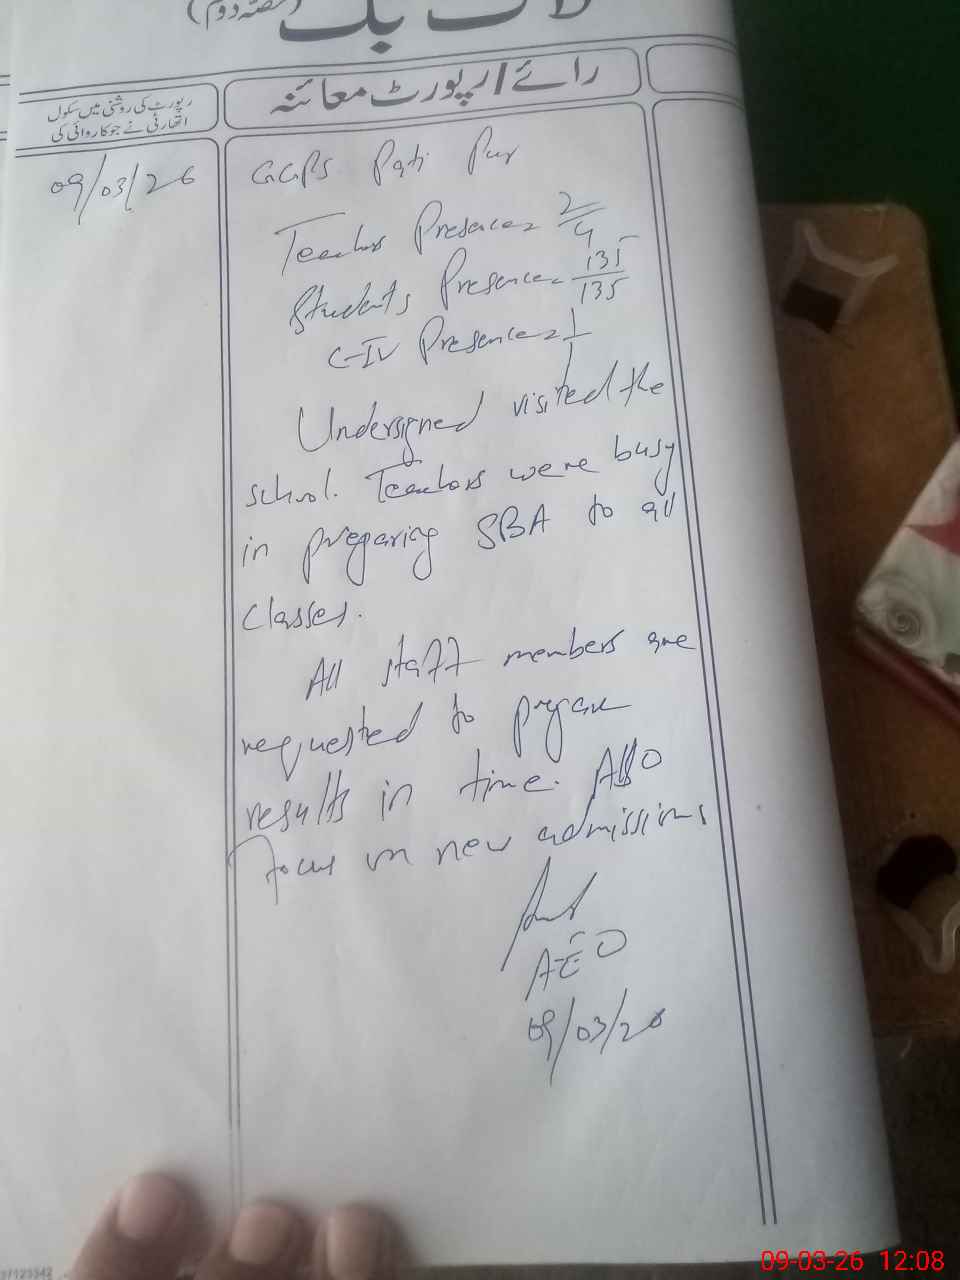 لاگ بک (حصہ دوم)
رائے/رپورٹ معائنہ
رپورٹ کی روشنی میں سکول
اتھارٹی نے جو کاروائی کی
09/03/26
GGPS Pati Pur
Teachers Presence = 2/4
Students Presence = 135/135
C-IV Presence = 1
Undersigned visited the
school. Teachers were busy
in preparing SBA to all
classes.
All staff members are
requested to prepare
results in time. Also
focus on new admissions
AEO
09/03/26
09-03-26 12:08